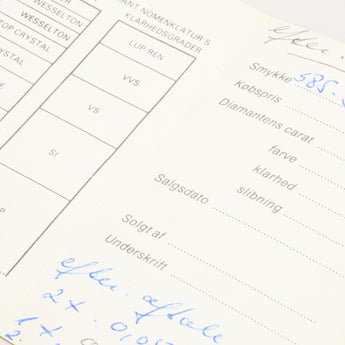 WESSELTON
WESSELTON
TOP CRYSTAL
CRYSTAL
ANT NOMENKLATUR'S
KLARHEDSGRADER
LUP REN
VVS
VS
SI
P
efter
Smykke 585
Købspris
Diamantens carat
farve
klarhed
slibning
Salgsdato
Solgt af
Underskrift
efter aftale
2 x 0,0
1 x
2